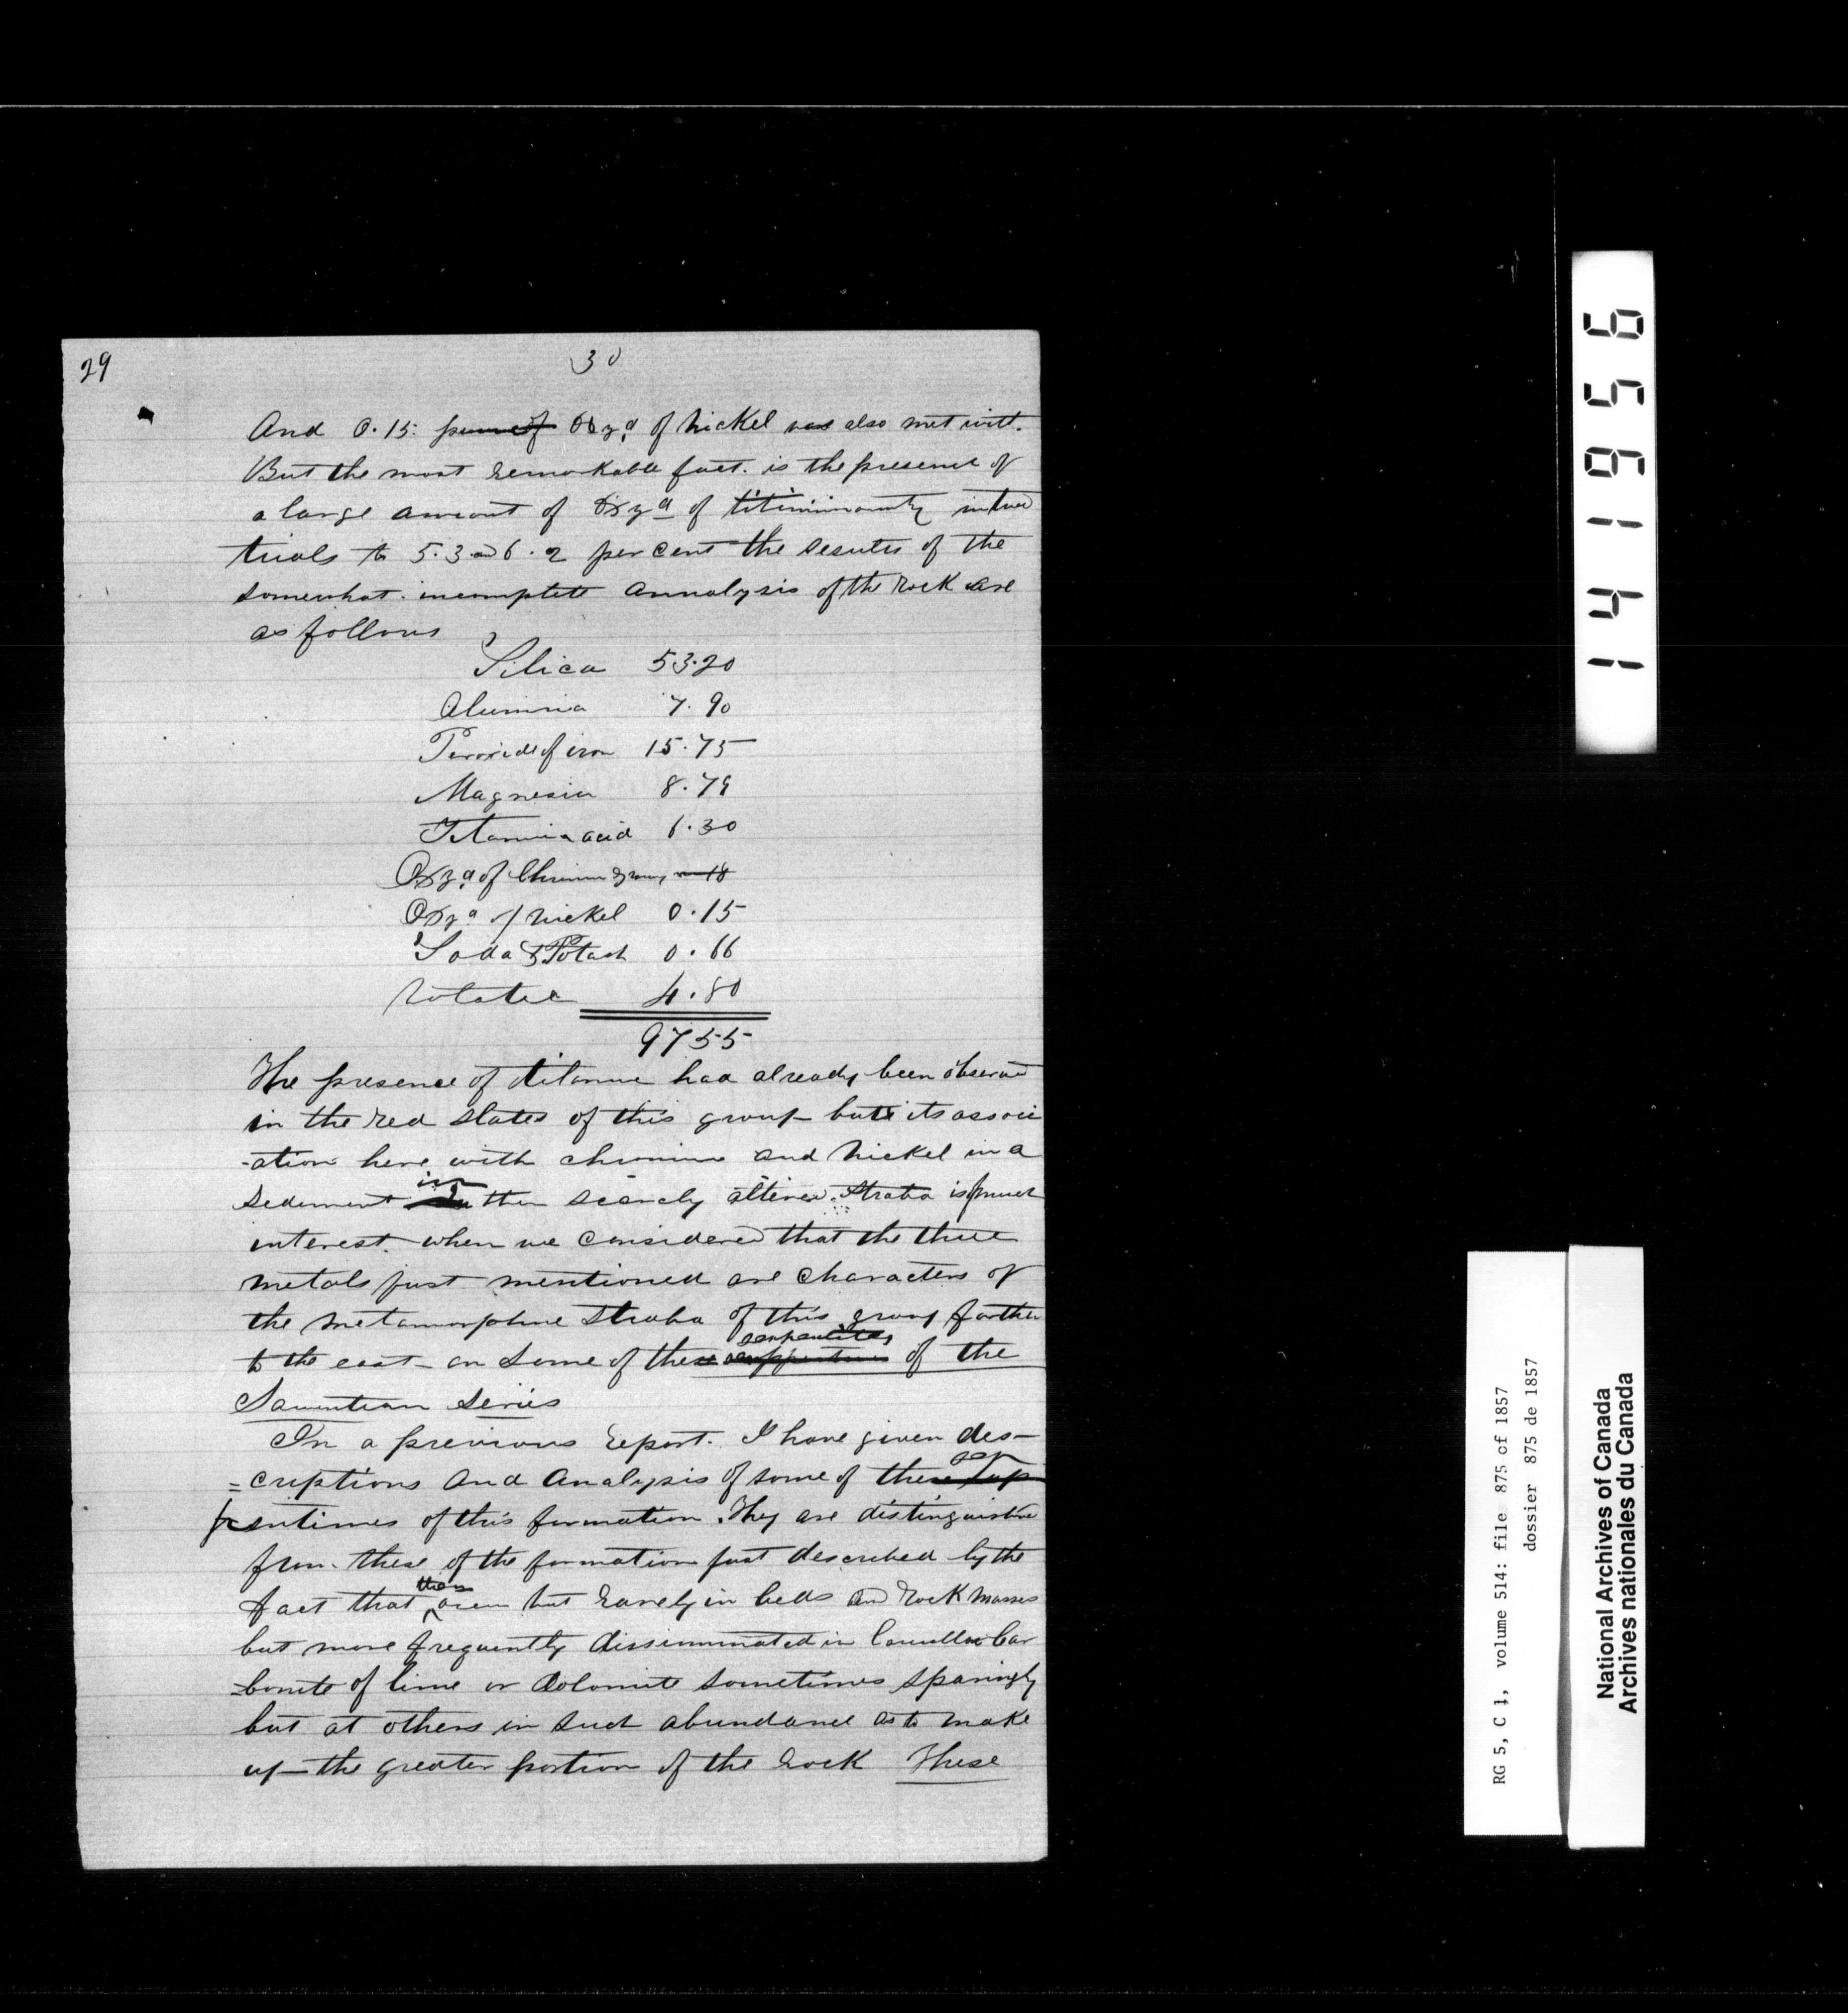 29
30
And 0.15. of Nickel was also met with.
But the most remarkable fact. is the presence of
a large amount of of in two
trials to 5.3 and 6.2 per cent the results of the
somewhat incomplete annalysis of the rock are
as follows
Silica 53.20
Alumina 7.90
Peroxide of iron 15.75
Magnesia 8.79
Titannic acid 6.30
of
of nickel 0.15
Soda & Potash 0.66
4.80
9755
The presence of titanium had already been observed
in the red slates of this group but its associ
-ation here with chromium and Nickel in a
sediment in then scarcely altered strata is of much
interest. when we considered that the three
metals just mentioned are characters of
the metamorphine strata of this group further
to the east on some of these serpentines of the
Laurentian Series
In a previous report. I have given des-
=criptions and analysis of some of these ser
pentines of this formation. They are
from these of the formation just described by the
fact that there but rarely in beds and rock masses
but more frequently dissiminated in Car
=bonite of lime or dolomite sometimes sparingly
but at others in such abundance as to make
up the greater portion of the rock These
141956
RG 5, C 1, volume 514: file 875 of 1857
dossier 875 de 1857
National Archives of Canada
Archives nationales du Canada